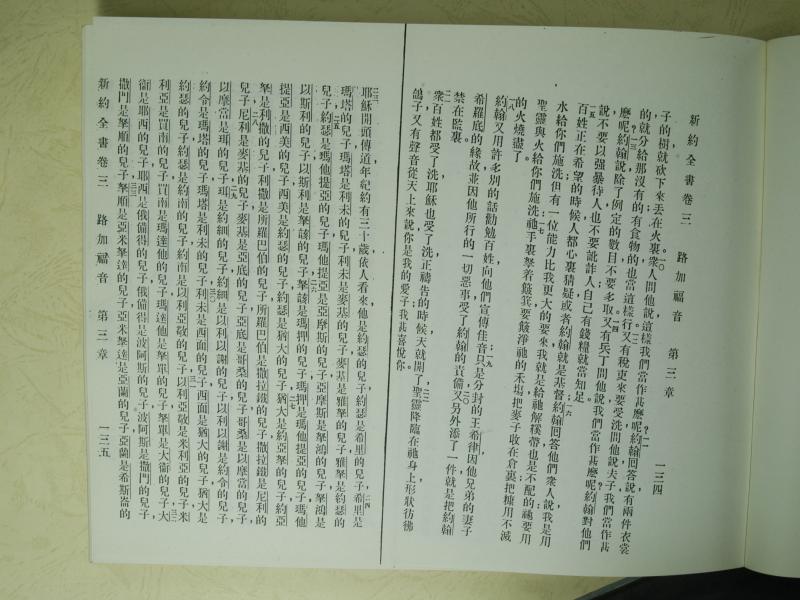 新約全書卷三 路加福音 第三章 一三四
子的樹就砍下來丟在火裏衆人問他說這樣我們當作甚麽呢約翰回答說有兩件衣裳
的就分給那沒有的有食物的也當這樣行又有稅吏來要受洗問他說夫子我們當作甚
麽呢約翰說除了例定的數目不要多取又有兵丁問他說我們當作甚麽呢約翰對他們
說不要以强暴待人也不要訛詐人自己有錢糧就當知足
百姓正在希望的時候人都心裏猜疑或者約翰就是基督約翰回答他們衆人說我是用
水給你們施洗但有一位能力比我更大的要來我就是給祂解鞋帶也是不配的祂要用
聖靈與火給你們施洗祂手裏拏着簸箕要簸淨祂的禾場把麥子收在倉裏把糠用不滅
的火燒盡了
約翰又用許多別的話勸勉百姓向他們宣傳佳音只是分封的王希律因他兄弟的妻子
希羅底的緣故並因他所行的一切惡事受了約翰的責備又另外添了一件就是把約翰
禁在監裏
衆百姓都受了洗耶穌也受了洗正禱告的時候天就開了聖靈降臨在祂身上形狀彷彿
鴿子又有聲音從天上來說你是我的愛子我甚喜悅你
耶穌開頭傳道年紀約有三十歲依人看來他是約瑟的兒子約瑟是希里的兒子希里是
瑪塔的兒子瑪塔是利未的兒子利未是麥基的兒子麥基是雅拏的兒子雅拏是約瑟的
兒子約瑟是瑪他提亞的兒子瑪他提亞是亞摩斯的兒子亞摩斯是拏鴻的兒子拏鴻是
以斯利的兒子以斯利是拏該的兒子拏該是瑪押的兒子瑪押是瑪他提亞的兒子瑪他
提亞是西美的兒子西美是約瑟的兒子約瑟是猶大的兒子猶大是約亞拏的兒子約亞
拏是利撒的兒子利撒是所羅巴伯的兒子所羅巴伯是撒拉鐵的兒子撒拉鐵是尼利的
兒子尼利是麥基的兒子麥基是亞底的兒子亞底是哥桑的兒子哥桑是以摩當的兒子
以摩當是珥的兒子珥是約細的兒子約細是以利以謝的兒子以利以謝是約令的兒子
約令是瑪塔的兒子瑪塔是利未的兒子利未是西面的兒子西面是猶大的兒子猶大是
約瑟的兒子約瑟是約南的兒子約南是以利亞敬的兒子以利亞敬是米利亞的兒子米
利亞是買南的兒子買南是瑪達他的兒子瑪達他是拏單的兒子拏單是大衞的兒子大
衞是耶西的兒子耶西是俄備得的兒子俄備得是波阿斯的兒子波阿斯是撒門的兒子
撒門是拏順的兒子拏順是亞米拏達的兒子亞米拏達是亞蘭的兒子亞蘭是希斯崙的
新約全書卷三 路加福音 第三章 一三五